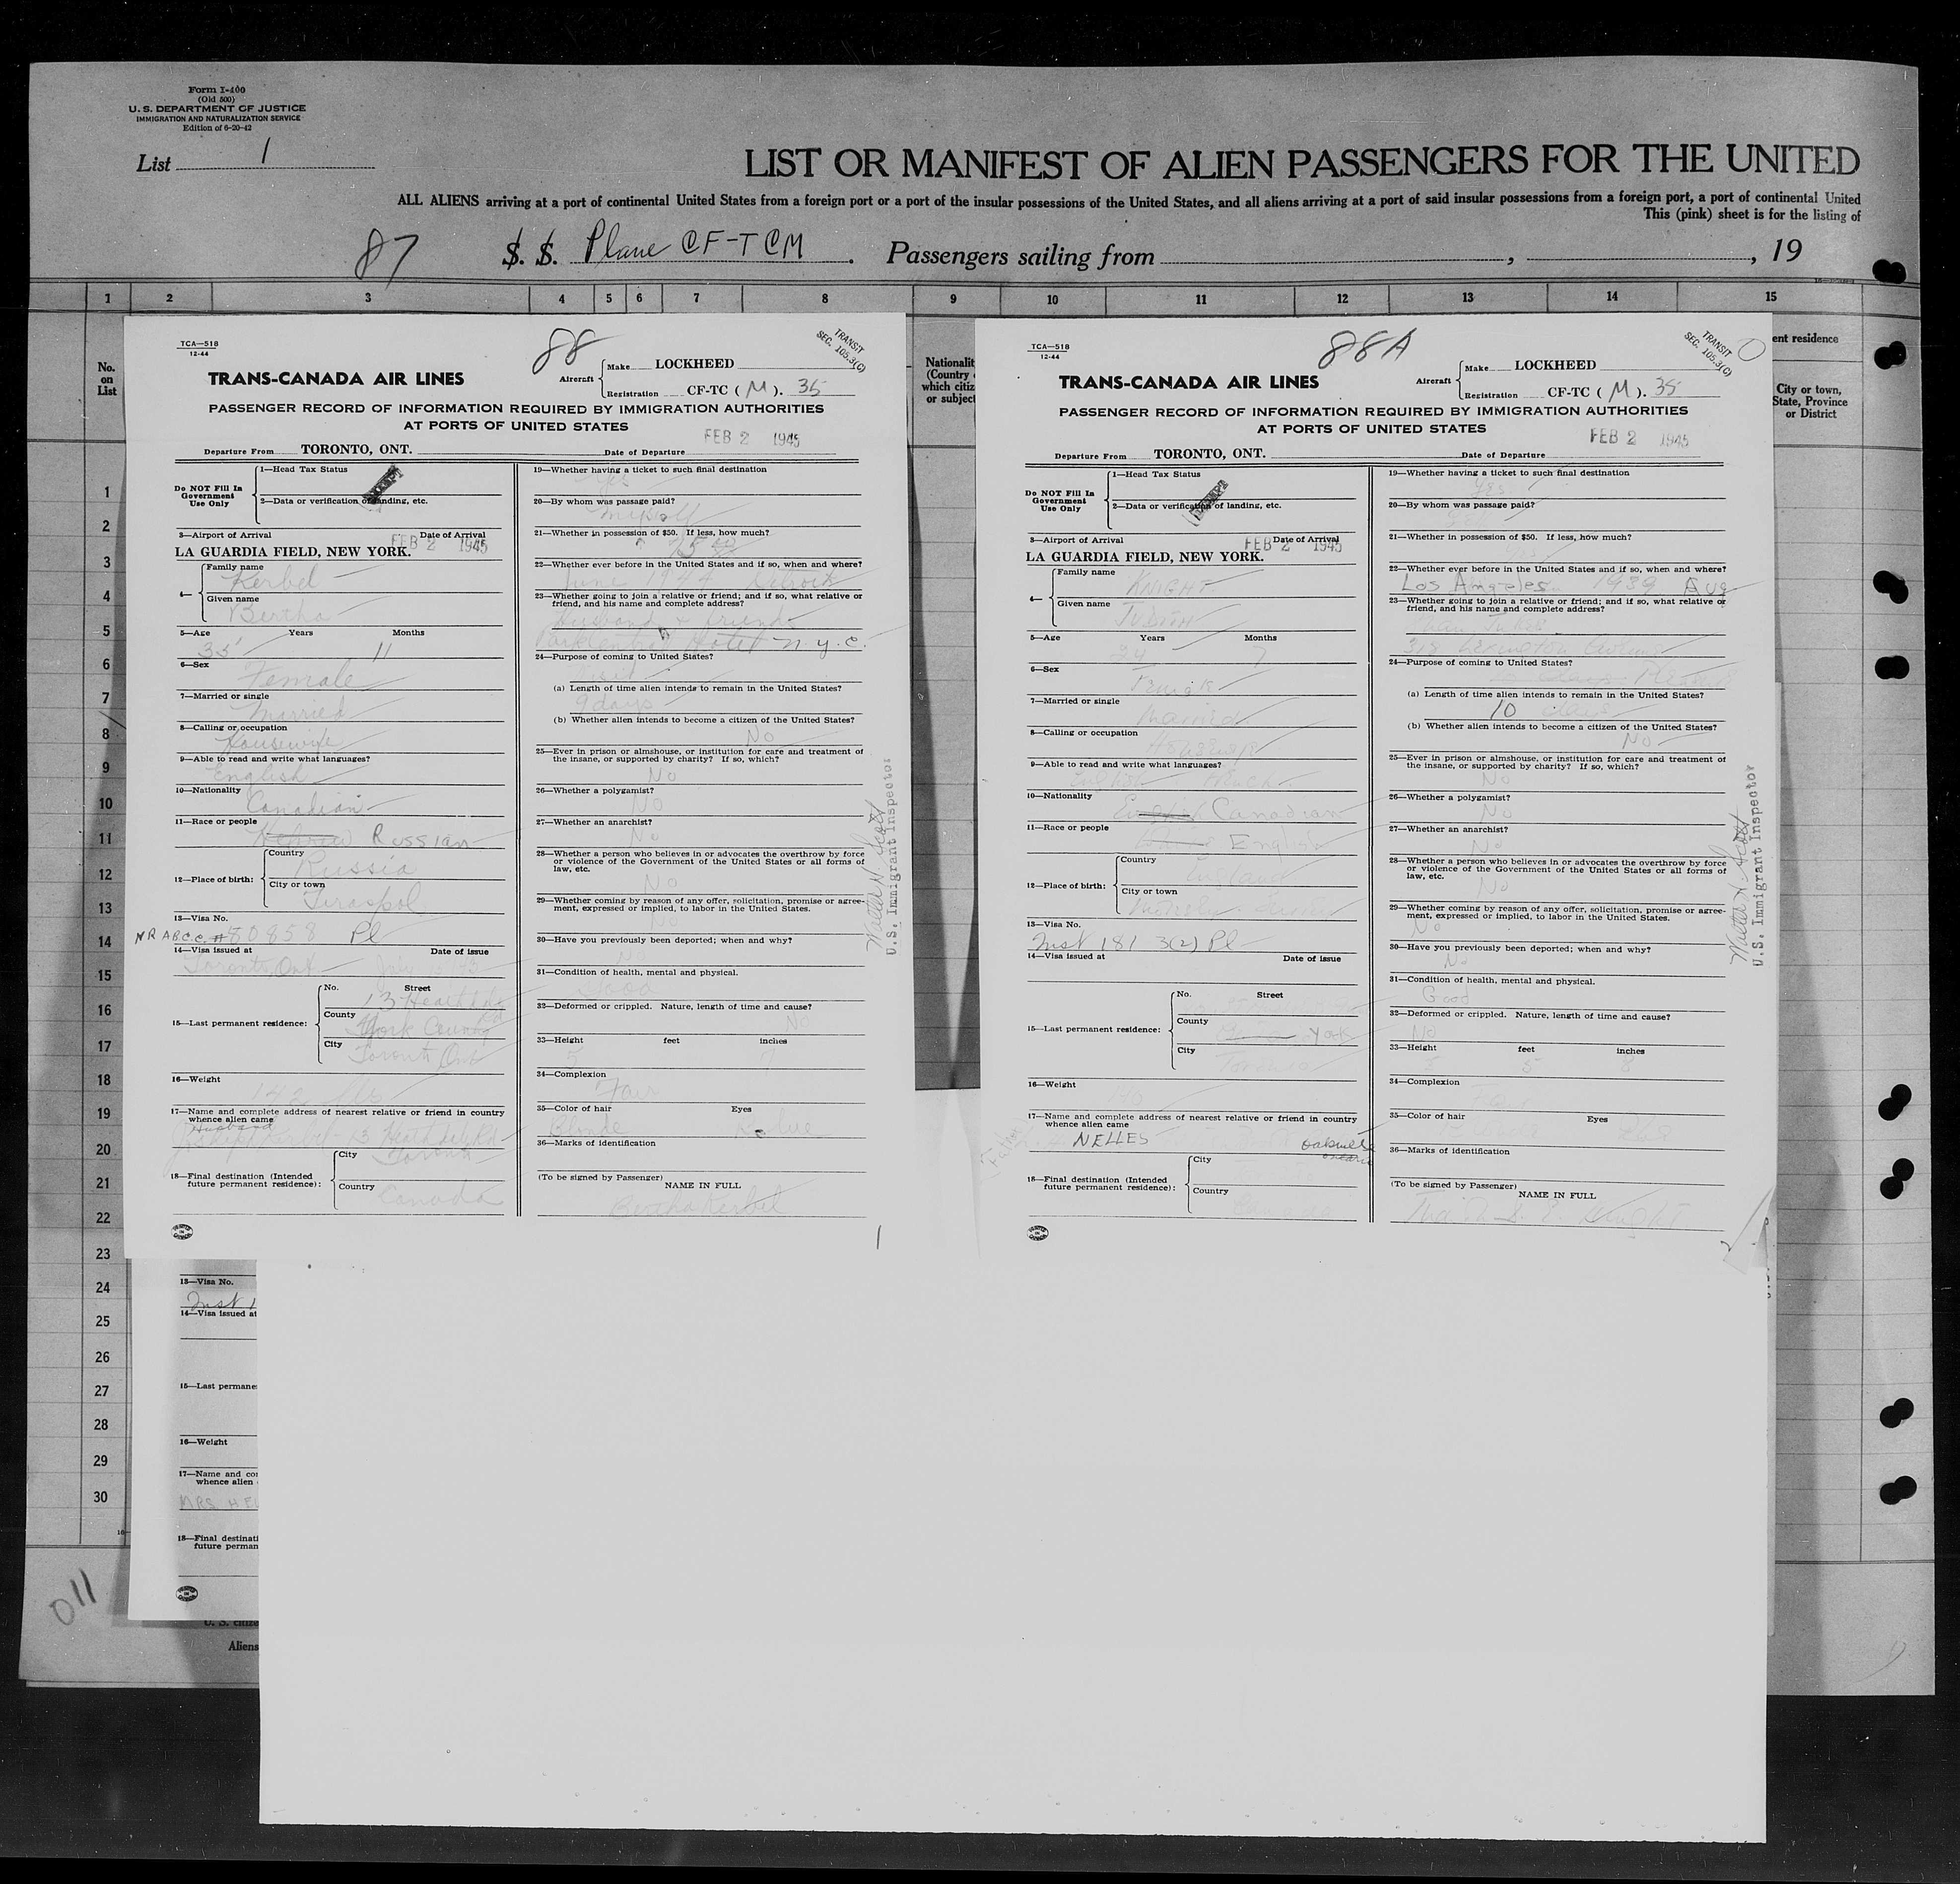 Form I-400
(Old 500)
U. S. DEPARTMENT OF JUSTICE
IMMIGRATION AND NATURALIZATION SERVICE
Edition of 6-20-42
List 1
LIST OR MANIFEST OF ALIEN PASSENGERS FOR THE UNITED
ALL ALIENS arriving at a port of continental United States from a foreign port or a port of the insular possessions of the United States, and all aliens arriving at a port of said insular possessions from a foreign port, a port of continental United
This (pink) sheet is for the listing of
87 S. S. Plane CF-TCM . Passengers sailing from , , 19
1 2 3 4 5 6 7 8 9 10 11 12 13 14 15
No.
on
List
Nationalit
(Country
which citiz
or subject
ent residence
City or town,
State, Province
or District
1
2
3
4
5
6
7
8
9
10
11
12
13
14
15
16
17
18
19
20
21
22
23
24
25
26
27
28
29
30
TCA—518
12-44
88
TRANSIT
SEC. 105.3(C)
TRANS-CANADA AIR LINES
Aircraft
Make LOCKHEED
Registration CF-TC ( M ). 35
PASSENGER RECORD OF INFORMATION REQUIRED BY IMMIGRATION AUTHORITIES
AT PORTS OF UNITED STATES
FEB 2 1945
Departure From TORONTO, ONT. Date of Departure
Do NOT Fill In
Government
Use Only
1—Head Tax Status
2—Data or verification of landing, etc.
EXEMPT
3—Airport of Arrival Date of Arrival
LA GUARDIA FIELD, NEW YORK. FEB 2 1945
4—
Family name
Kerbel
Given name
Bertha
5—Age Years Months
35 11
6—Sex
Female
7—Married or single
Married
8—Calling or occupation
Housewife
9—Able to read and write what languages?
English
10—Nationality
Canadian
11—Race or people
Hebrew Russian
12—Place of birth:
Country
Russia
City or town
Tiraspol
13—Visa No.
NR ABCC # 90858 Pl
14—Visa issued at Date of issue
Toronto Ont
15—Last permanent residence:
No. Street
13
County
York County
City
Toronto Ont
16—Weight
17—Name and complete address of nearest relative or friend in country
whence alien came
Husband
18—Final destination (Intended
future permanent residence):
City
Toronto
Country
Canada
19—Whether having a ticket to such final destination
Yes
20—By whom was passage paid?
myself
21—Whether in possession of $50. If less, how much?
22—Whether ever before in the United States and if so, when and where?
June 1944 Detroit
23—Whether going to join a relative or friend; and if so, what relative or
friend, and his name and complete address?
husband & friends
Hotel N.Y.C.
24—Purpose of coming to United States?
visit
(a) Length of time alien intends to remain in the United States?
9 days
(b) Whether alien intends to become a citizen of the United States?
No
25—Ever in prison or almshouse, or institution for care and treatment of
the insane, or supported by charity? If so, which?
No
26—Whether a polygamist?
No
27—Whether an anarchist?
No
28—Whether a person who believes in or advocates the overthrow by force
or violence of the Government of the United States or all forms of
law, etc.
No
29—Whether coming by reason of any offer, solicitation, promise or agree-
ment, expressed or implied, to labor in the United States.
No
30—Have you previously been deported; when and why?
No
31—Condition of health, mental and physical.
Good
32—Deformed or crippled. Nature, length of time and cause?
No
33—Height feet inches
5
34—Complexion
Fair
35—Color of hair Eyes
Blonde Blue
36—Marks of identification
(To be signed by Passenger)
NAME IN FULL
Bertha Kerbel
Walter N. Scott
U.S. Immigrant Inspector
1
TCA—518
12-44
88A
TRANSIT
SEC. 105.3(C)
TRANS-CANADA AIR LINES
Aircraft
Make LOCKHEED
Registration CF-TC ( M ). 35
PASSENGER RECORD OF INFORMATION REQUIRED BY IMMIGRATION AUTHORITIES
AT PORTS OF UNITED STATES
FEB 2 1945
Departure From TORONTO, ONT. Date of Departure
Do NOT Fill In
Government
Use Only
1—Head Tax Status
2—Data or verification of landing, etc.
EXEMPT
3—Airport of Arrival Date of Arrival
LA GUARDIA FIELD, NEW YORK. FEB 2 1945
4—
Family name
KNIGHT
Given name
JUDITH
5—Age Years Months
29 7
6—Sex
Female
7—Married or single
Married
8—Calling or occupation
Housewife
9—Able to read and write what languages?
English French
10—Nationality
English Canadian
11—Race or people
English
12—Place of birth:
Country
England
City or town
13—Visa No.
Inst 181 3(2) Pl
14—Visa issued at Date of issue
15—Last permanent residence:
No. Street
County
York
City
Toronto
16—Weight
17—Name and complete address of nearest relative or friend in country
whence alien came
Father
NELLES Oakville
Ontario
18—Final destination (Intended
future permanent residence):
City
Country
Canada
19—Whether having a ticket to such final destination
Yes
20—By whom was passage paid?
21—Whether in possession of $50. If less, how much?
22—Whether ever before in the United States and if so, when and where?
Los Angeles 1939 Aug
23—Whether going to join a relative or friend; and if so, what relative or
friend, and his name and complete address?
Lexington Avenue
24—Purpose of coming to United States?
(a) Length of time alien intends to remain in the United States?
10 days
(b) Whether alien intends to become a citizen of the United States?
No
25—Ever in prison or almshouse, or institution for care and treatment of
the insane, or supported by charity? If so, which?
No
26—Whether a polygamist?
No
27—Whether an anarchist?
No
28—Whether a person who believes in or advocates the overthrow by force
or violence of the Government of the United States or all forms of
law, etc.
No
29—Whether coming by reason of any offer, solicitation, promise or agree-
ment, expressed or implied, to labor in the United States.
No
30—Have you previously been deported; when and why?
No
31—Condition of health, mental and physical.
Good
32—Deformed or crippled. Nature, length of time and cause?
No
33—Height feet inches
5 8
34—Complexion
35—Color of hair Eyes
36—Marks of identification
(To be signed by Passenger)
NAME IN FULL
Knight
Walter N. Scott
U.S. Immigrant Inspector
13—Visa No.
Inst 1
14—Visa issued at
15—Last permane
16—Weight
17—Name and co
whence alien
MRS HE
18—Final destinati
future perman
U. S. citize
Aliens
011